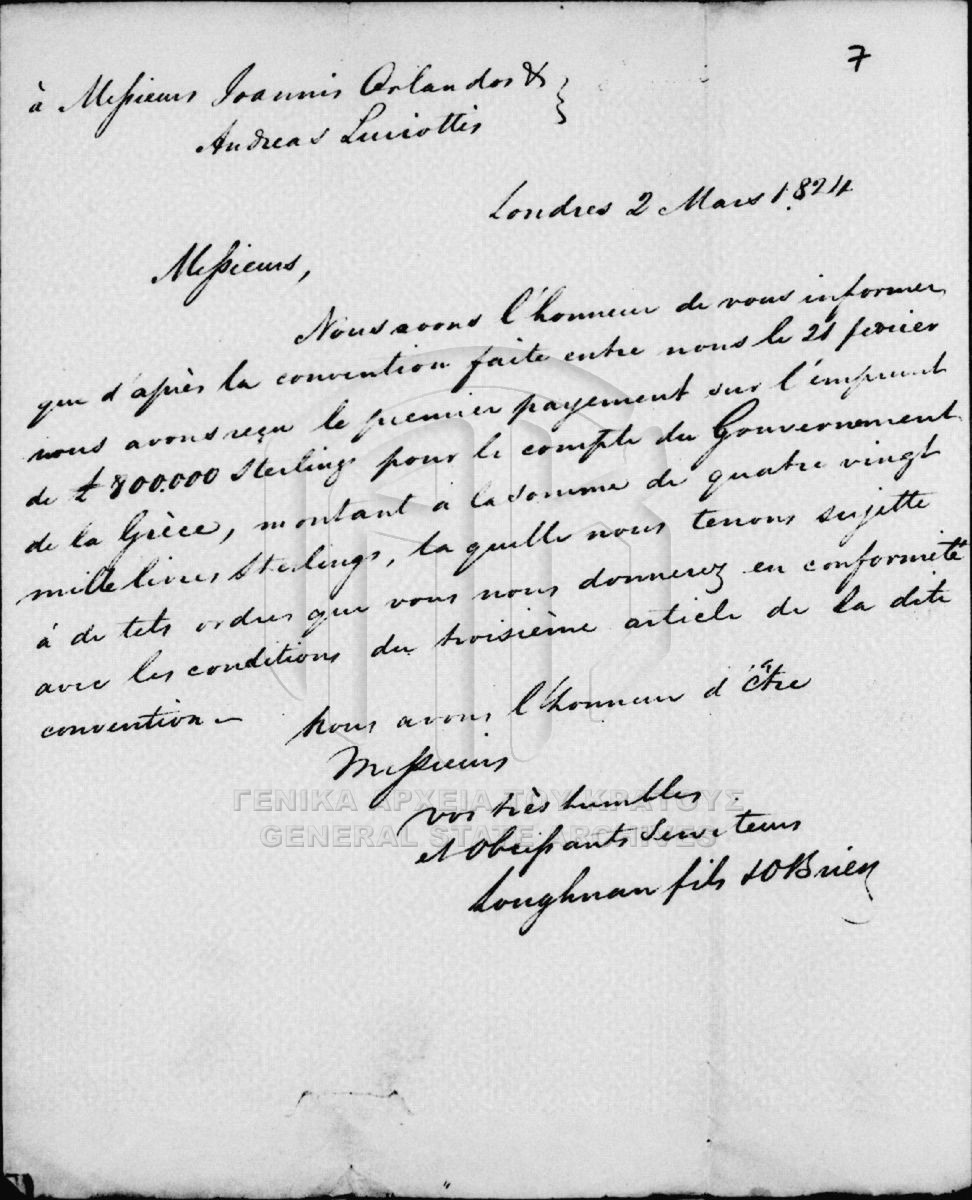 7
à Messieurs Ioannis Orlandos &
Andreas Luriottis
Londres 2 Mars 1824
Messieurs,
Nous avons l'honneur de vous informer
que d'après la convention faite entre nous le 21 fevrier
nous avons reçu le premier payement sur l'emprunt
de £ 800.000 Sterlings pour le compte du Gouvernement
de la Grèce, montant à la somme de quatre vingt
mille livres Sterlings, la quelle nous tenons sujette
à de tels ordres que vous nous donnerez en conformité
avec les conditions du troisième article de la dite
convention —
Nous avons l'honneur d'être
Messieurs
vos très humbles
et Obeissants Serviteurs
Loughnan fils & OBrien
ΓΕΝΙΚΑ ΑΡΧΕΙΑ ΤΟΥ ΚΡΑΤΟΥΣ
GENERAL STATE ARCHIVES